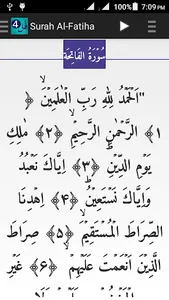 7:09 PM
4 Surah Al-Fatiha
سُوْرَةُ الفَاتِحَة
"اَلْحَمْدُ لِلّٰهِ رَبِّ الْعٰلَمِيْنَ ۙ﴿
۱﴾ الرَّحْمٰنِ الرَّحِيْمِ ۙ﴿۲﴾ مٰلِكِ
يَوْمِ الدِّيْنِ ؕ﴿۳﴾ اِيَّاكَ نَعْبُدُ
وَاِيَّاكَ نَسْتَعِيْنُ ؕ﴿۴﴾ اِهْدِنَا
الصِّرَاطَ الْمُسْتَقِيْمَ ۙ﴿۵﴾ صِرَاطَ
الَّذِيْنَ اَنْعَمْتَ عَلَيْهِمْ ۙ۬﴿۶﴾ غَيْرِ